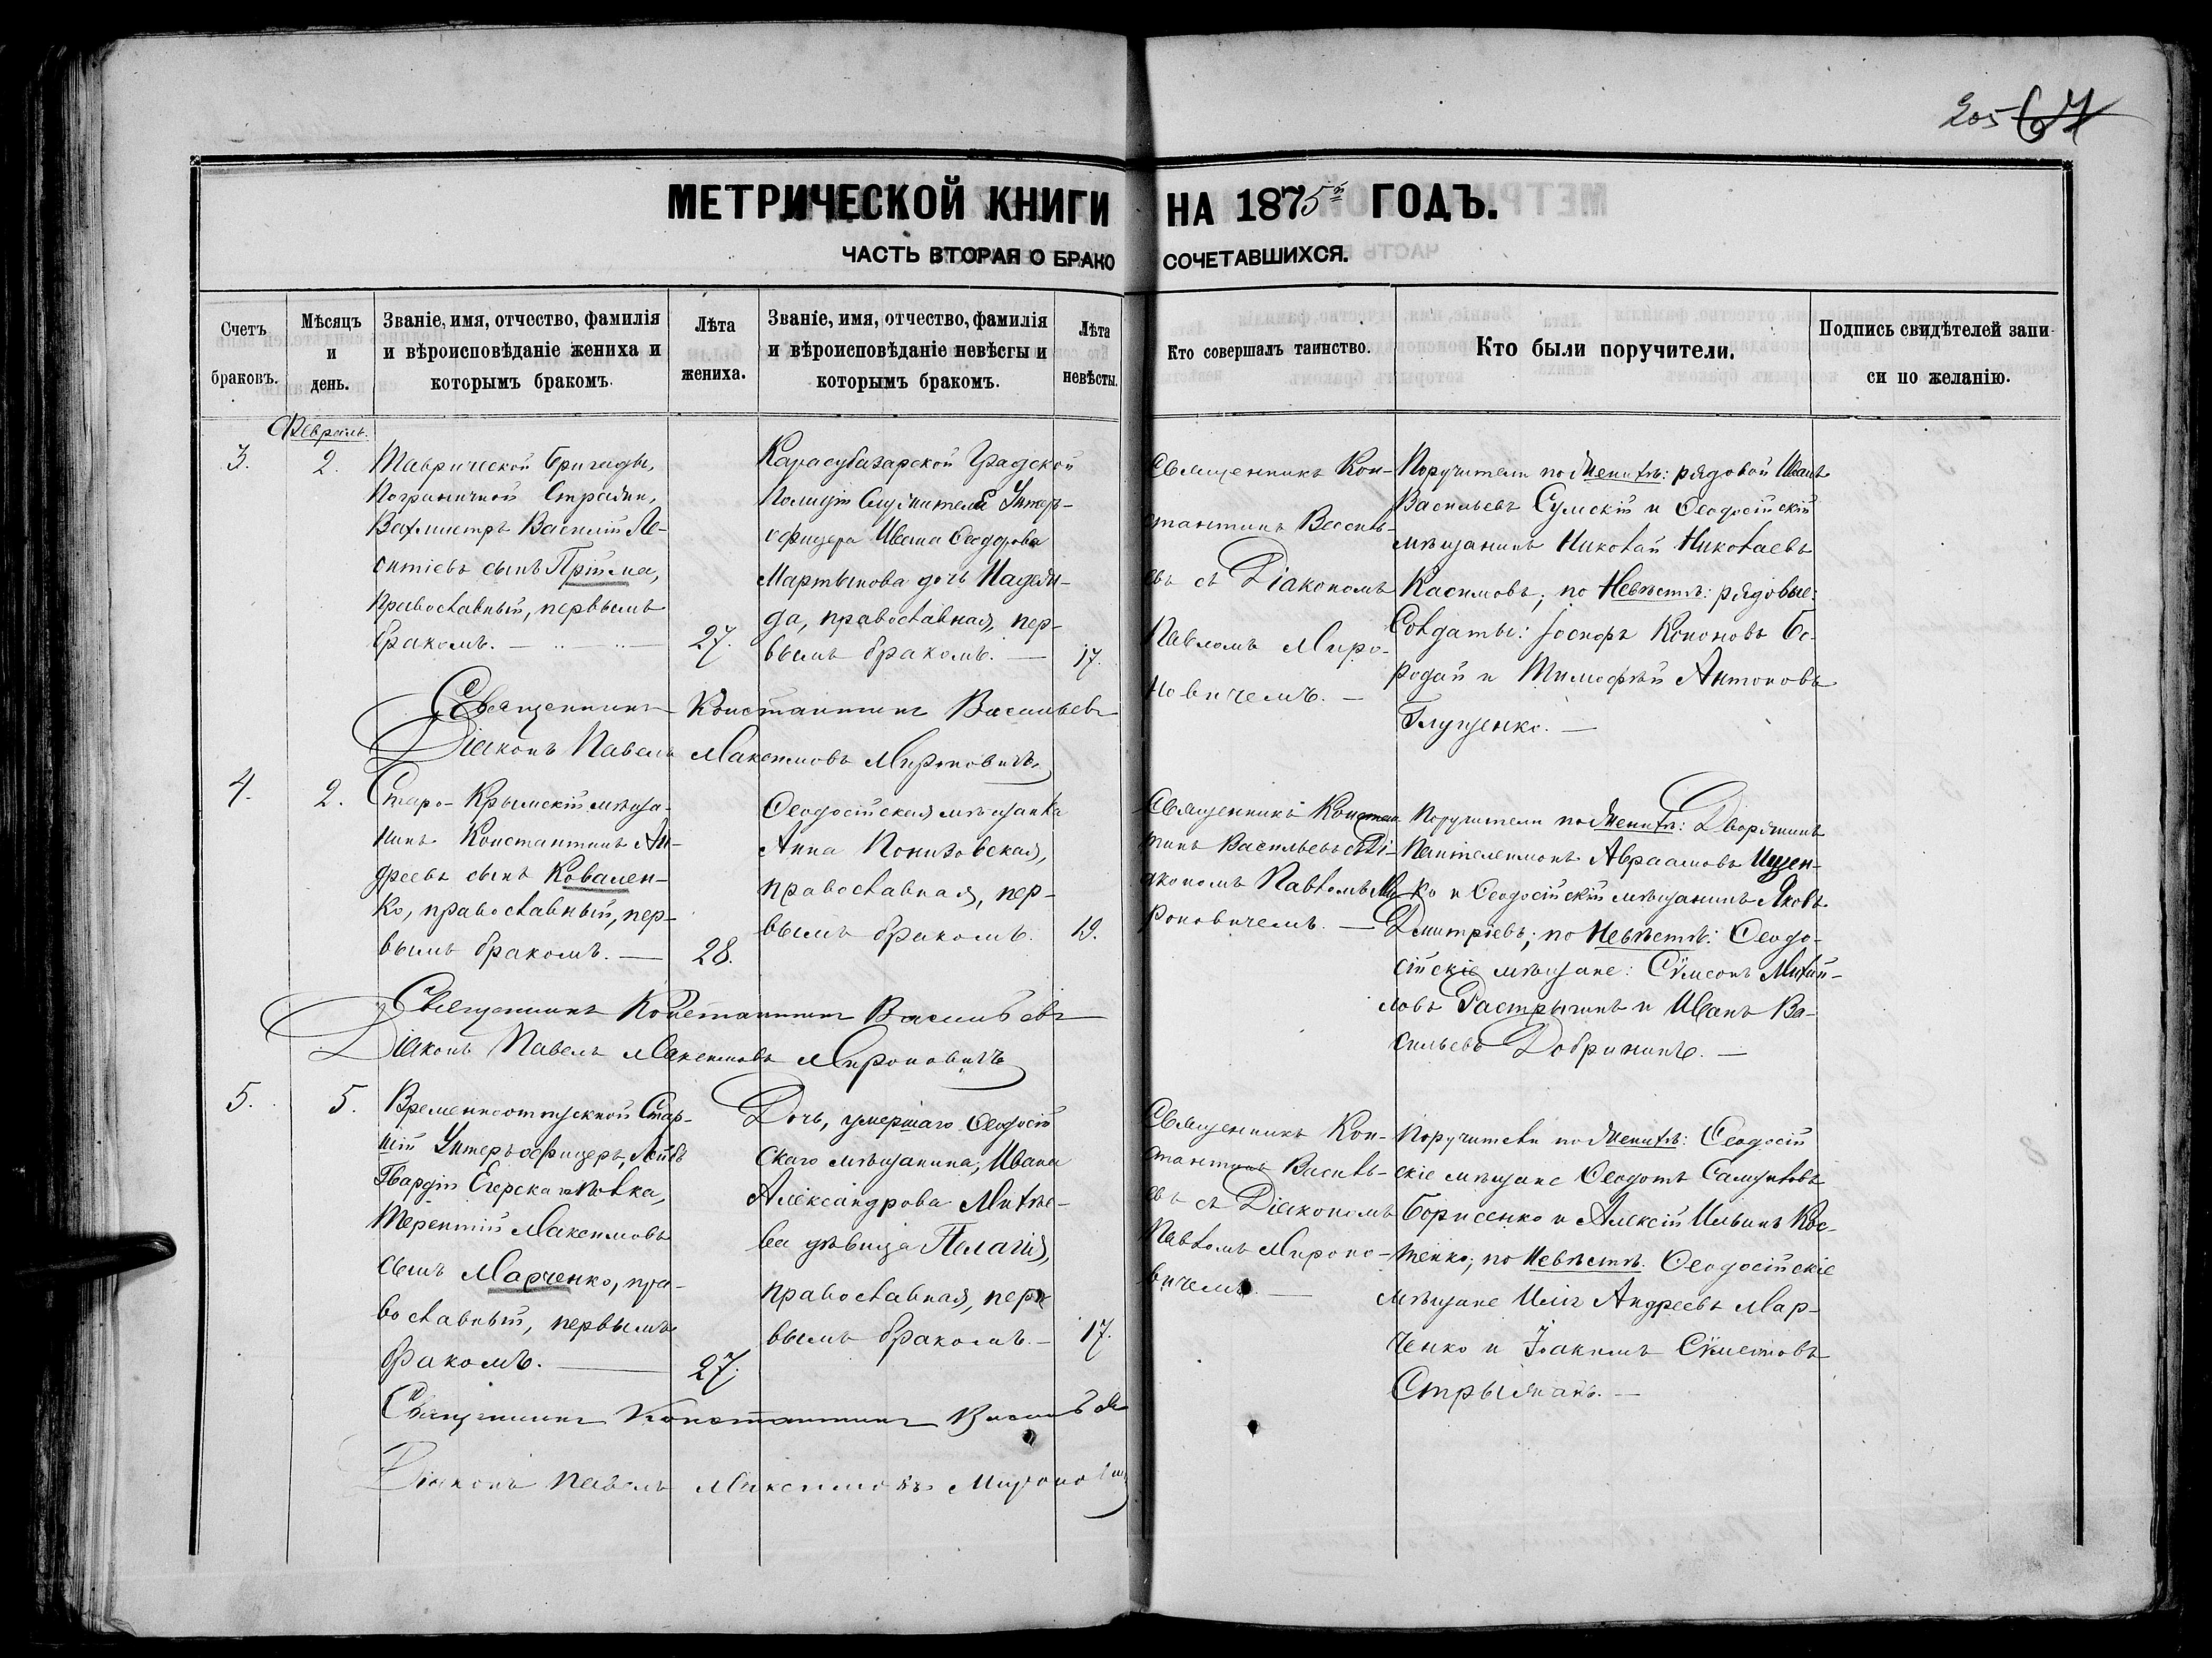 205 67
МЕТРИЧЕСКОЙ КНИГИ НА 1875й ГОДЪ.
ЧАСТЬ ВТОРАЯ О БРАКОСОЧЕТАВШИХСЯ.
Счетъ браковъ.
Мѣсяцъ и день.
Званіе, имя, отчество, фамилія
и вѣроисповѣданіе жениха и
которымъ бракомъ.
Лѣта
жениха.
Званіе, имя, отчество, фамилія
и вѣроисповѣданіе невѣсты и
которымъ бракомъ.
Лѣта
невѣсты.
Кто совершалъ таинство.
Кто были поручители.
Подпись свидѣтелей запи-
си по желанію.
Февраль.
3.
2.
Таврической бригады,
Пограничной Стражи,
Вахмистръ Василій Ле-
онтіевъ сынъ Прійма,
православный, первымъ
бракомъ.
27.
Карасубазарской Градской
Полиціи Служителя Унтеръ-
офицера Ивана Ѳеодорова
Мартынова дочь Надеж-
да, православная, пер-
вымъ бракомъ.
17.
Священникъ Кон-
стантинъ Василь-
евъ съ Діакономъ
Павломъ Миро-
новичемъ.
Поручители по Женихѣ: рядовой Иванъ
Васильевъ Сумскій и Ѳеодосійскій
мѣщанинъ Николай Николаевъ
Касимовъ; по Невѣстѣ: рядовые:
Солдаты: Іосифъ Кононовъ Бо-
родай и Тимофѣй Антоновъ
Глущенко.
Священникъ Константинъ Васильевъ
Діаконъ Павелъ Максимовъ Мироновичъ
4.
2.
Старо-Крымскій мѣща-
нинъ Константинъ Ан-
дреевъ сынъ Ковален-
ко, православный, пер-
вымъ бракомъ.
28.
Ѳеодосійская мѣщанка
Анна Понизовская,
православная, пер-
вымъ бракомъ.
19.
Священникъ Констан-
тинъ Васильевъ съ Ді-
акономъ Павломъ Ми-
роновичемъ.
Поручители по Женихѣ: Дворянинъ
Пантелеимонъ Авраамовъ Ищен-
ко и Ѳеодосійскій мѣщанинъ Яковъ
Дмитріевъ; по Невѣстѣ: Ѳеодо-
сійскіе мѣщане: Сѵмеонъ Михай-
ловъ Растрыгинъ и Иванъ Ва-
сильевъ Добрининъ.
Священникъ Константинъ Васильевъ
Діаконъ Павелъ Максимовъ Мироновичъ
5.
5.
Временноотпускной Стар-
шій Унтеръ-офицеръ, Лейбъ
Гвардіи Егерскаго Полка,
Терентій Максимовъ
сынъ Марченко, пра-
вославный, первымъ
бракомъ.
27.
Дочь, умершаго Ѳеодосій
скаго мѣщанина, Ивана
Александрова Михѣе-
ва дѣвица Пелагія,
православная, пер
вымъ бракомъ.
17.
Священникъ Кон-
стантинъ Василь-
евъ съ Діакономъ
Павломъ Мироно-
вичемъ.
Поручители по Женихѣ: Ѳеодосій
скіе мѣщане Ѳеодотъ Самуиловъ
Борисенко и Алексій Ильинъ Кос-
тенко; по Невѣстѣ: Ѳеодосійскіе
мѣщане Илія Андреевъ Мар-
ченко и Іоакимъ Сѵмеоновъ
Стрыжакъ.
Священникъ Константинъ Васильевъ
Діаконъ Павелъ Максимовъ Миронович